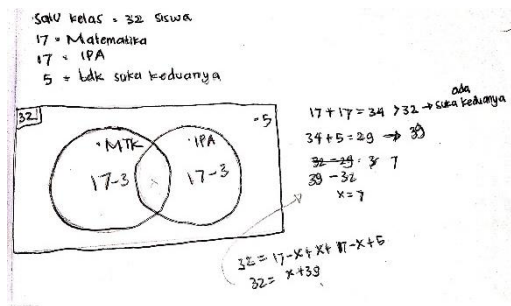 Satu kelas = 32 siswa
17 = Matematika
17 = IPA
5 = tdk suka keduanya
32
• 5
• MTK
• IPA
17-3
x
17-3
17 + 17 = 34 > 32 → ada suka keduanya
34 + 5 = 29 → 39
32 - 29 = 3 7
39 - 32
x = 7
32 = 17-x+x+17-x+5
32 = x+39